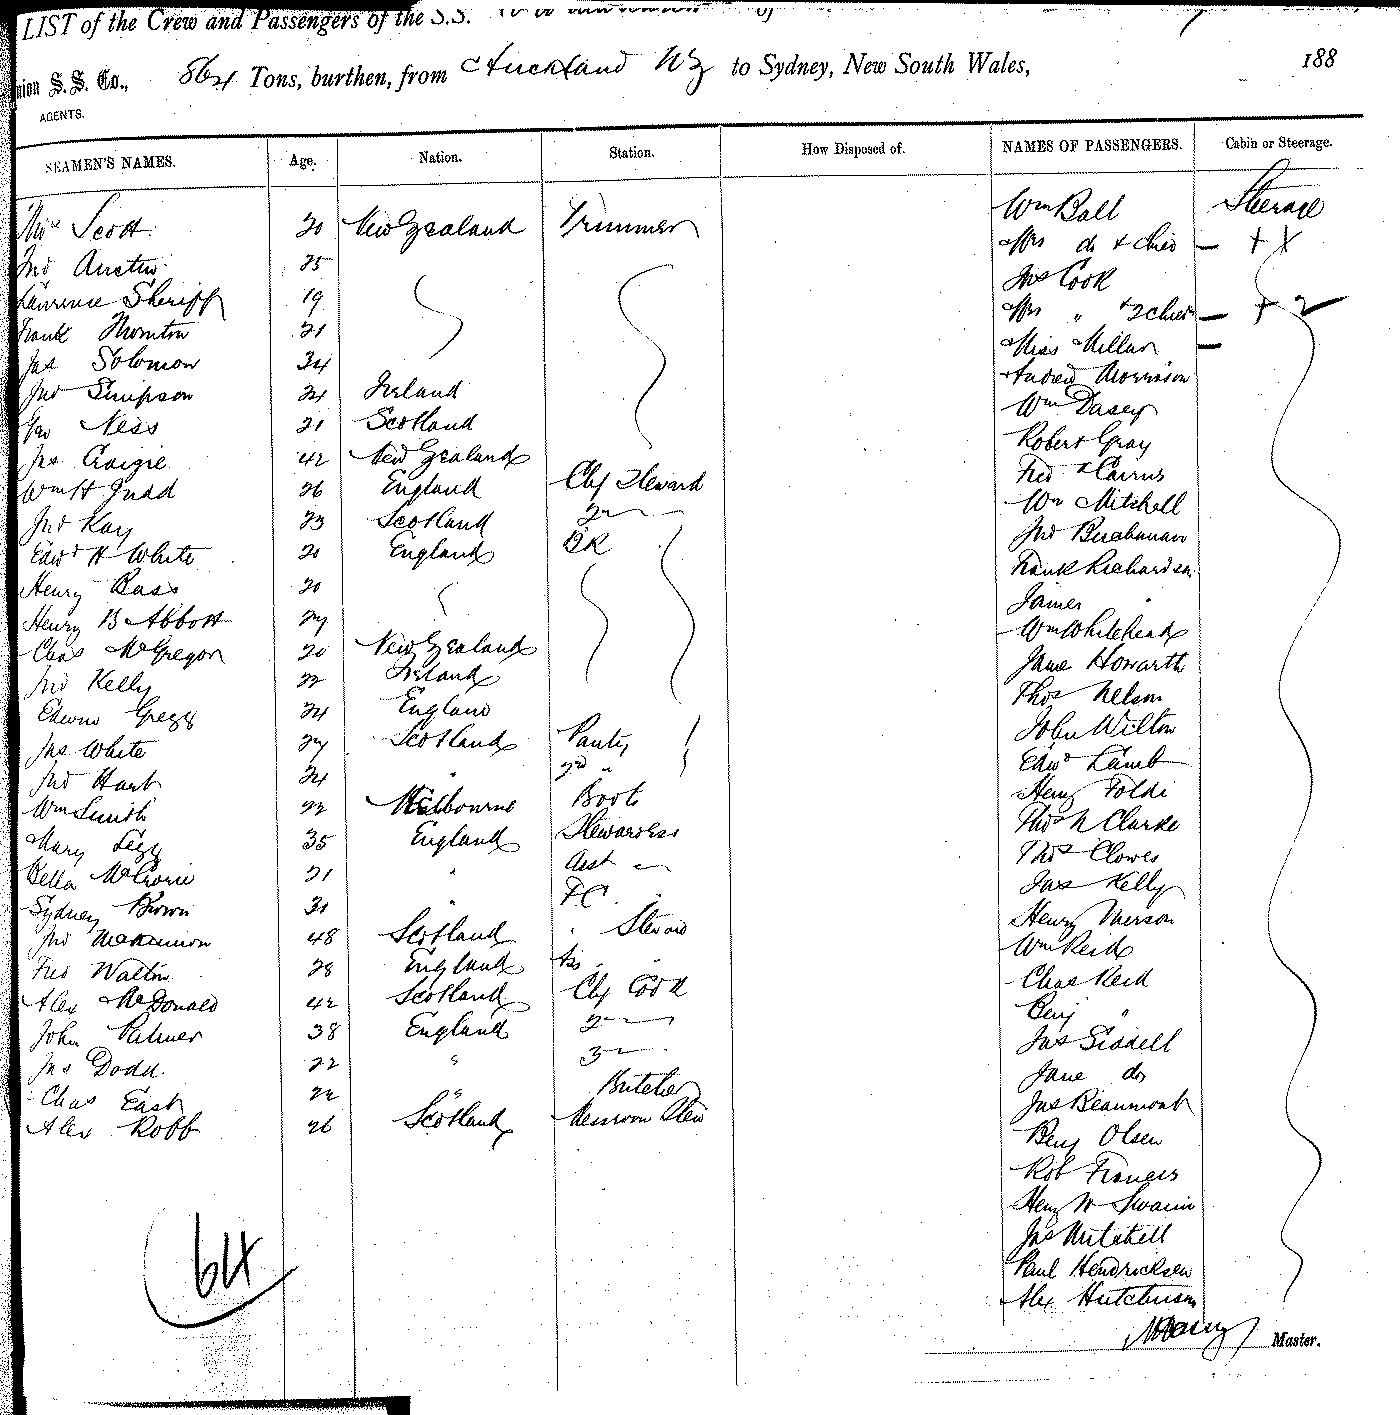 LIST of the Crew and Passengers of the S.S. of
S. S. Co., 864 Tons, burthen, from Auckland NZ to Sydney, New South Wales, 188
AGENTS.
SEAMEN'S NAMES. Age. Nation. Station. How Disposed of. NAMES OF PASSENGERS. Cabin or Steerage.
Scott 20 New Zealand Trimmer Wm Ball Steerage
Jno Austin 25 Mrs do & child — + X
Lawrence Sheriff 19 Jas Cook
Frank Thornton 21 Mrs " & 2 child — + 2
Jas Solomon 34 Miss Millar —
Jno Simpson 24 Ireland Andrew Morrison
Ness 21 Scotland Wm Dasey
Jas Craigie 42 New Zealand Robert Gray
Wm H Judd 26 England Chf Steward Fred Cairns
Jno Kay 23 Scotland 2 — Wm Mitchell
Edwd H White 20 England BR Jno Buchanan
Henry Bass 20 Frank Richardson
Henry B Abbott 27 James "
Chas McGregor 20 New Zealand Wm Whitehead
Jno Kelly 22 Ireland Jane Howarth
Edwin Gregg 24 England Thos Nelson
Jas White 27 Scotland Pantry John Wilton
Jno Hart 24 " 2nd " Edwd Lamb
Wm Smith 22 Melbourne Boots Henry Foldi
Mary Legg 35 England Stewardess Thos N Clarke
Bella McCrorie 21 " Asst — Thos Clowes
Sydney Brown 31 " FC " Jas Kelly
Jno McKinnon 48 Scotland " Steward Henry Merson
Fred Walton 28 England Ass " " Wm Reid
Alex McDonald 42 Scotland Chf Cook Chas Reid
John Palmer 38 England 2 — Benj "
Jas Dodd 22 " 3 — Jas Siddell
Chas East 22 " Butcher Jane do
Alex Robb 26 Scotland Messroom Stew Jas Beaumont
Benj Olsen
Rob Francis
Henry W Swain
Jas Mitchell
Paul Hendricksen
Alex Hutchison
64
Master.